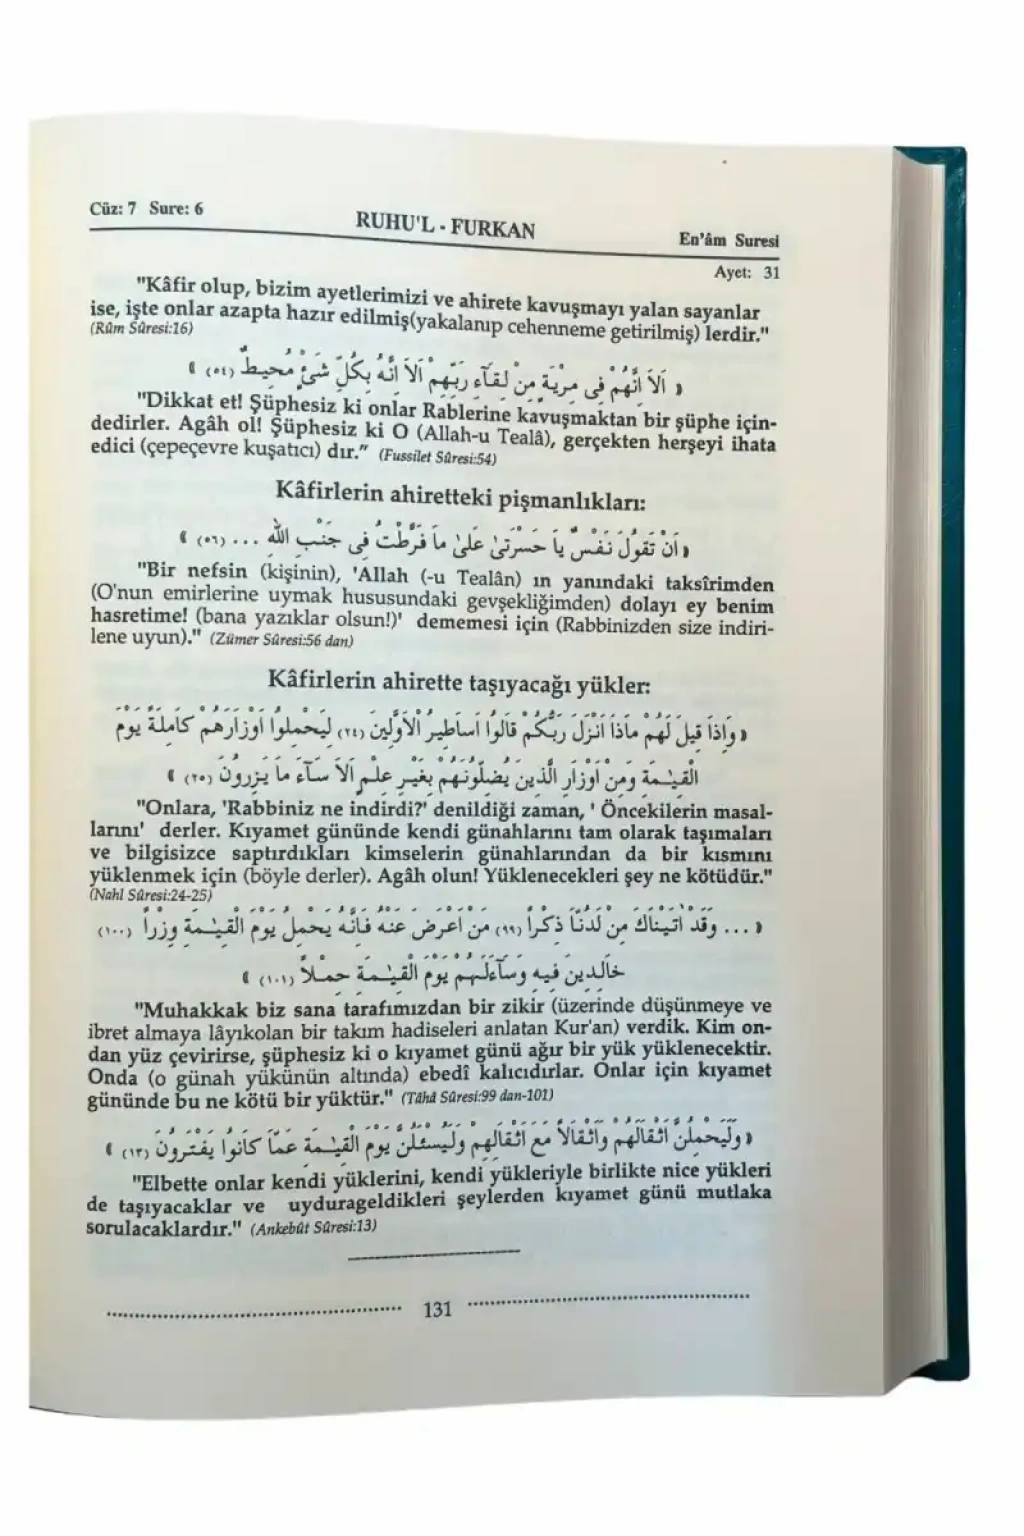 Cüz: 7 Sure: 6
RUHU'L - FURKAN
En'âm Suresi
Ayet: 31
"Kâfir olup, bizim ayetlerimizi ve ahirete kavuşmayı yalan sayanlar
ise, işte onlar azapta hazır edilmiş(yakalanıp cehenneme getirilmiş) lerdir."
(Rûm Sûresi:16)
﴿ اَلَا اِنَّهُمْ فِى مِرْيَةٍ مِنْ لِقَآءِ رَبِّهِمْ اَلَا اِنَّهُ بِكُلِّ شَىْءٍ مُحِيطٌ (٥٤) ﴾
"Dikkat et! Şüphesiz ki onlar Rablerine kavuşmaktan bir şüphe için-
dedirler. Agâh ol! Şüphesiz ki O (Allah-u Tealâ), gerçekten herşeyi ihata
edici (çepeçevre kuşatıcı) dır." (Fussilet Sûresi:54)
Kâfirlerin ahiretteki pişmanlıkları:
﴿ اَنْ تَقُولَ نَفْسٌ يَا حَسْرَتٰى عَلٰى مَا فَرَّطْتُ فِى جَنْبِ اللّٰهِ ... (٥٦) ﴾
"Bir nefsin (kişinin), 'Allah (-u Tealân) ın yanındaki taksîrimden
(O'nun emirlerine uymak hususundaki gevşekliğimden) dolayı ey benim
hasretime! (bana yazıklar olsun!)' dememesi için (Rabbinizden size indiri-
lene uyun)." (Zümer Sûresi:56 dan)
Kâfirlerin ahirette taşıyacağı yükler:
﴿ وَاِذَا قِيلَ لَهُمْ مَاذَا اَنْزَلَ رَبُّكُمْ قَالُوا اَسَاطِيرُ الْاَوَّلِينَ (٢٤) لِيَحْمِلُوا اَوْزَارَهُمْ كَامِلَةً يَوْمَ
الْقِيٰمَةِ وَمِنْ اَوْزَارِ الَّذِينَ يُضِلُّونَهُمْ بِغَيْرِ عِلْمٍ اَلَا سَآءَ مَا يَزِرُونَ (٢٥) ﴾
"Onlara, 'Rabbiniz ne indirdi?' denildiği zaman, ' Öncekilerin masal-
larını' derler. Kıyamet gününde kendi günahlarını tam olarak taşımaları
ve bilgisizce saptırdıkları kimselerin günahlarından da bir kısmını
yüklenmek için (böyle derler). Agâh olun! Yüklenecekleri şey ne kötüdür."
(Nahl Sûresi:24-25)
﴿ ... وَقَدْ اٰتَيْنَاكَ مِنْ لَدُنَّا ذِكْراً (٩٩) مَنْ اَعْرَضَ عَنْهُ فَاِنَّهُ يَحْمِلُ يَوْمَ الْقِيٰمَةِ وِزْراً (١٠٠)
خَالِدِينَ فِيهِ وَسَآءَ لَهُمْ يَوْمَ الْقِيٰمَةِ حِمْلاً (١٠١) ﴾
"Muhakkak biz sana tarafımızdan bir zikir (üzerinde düşünmeye ve
ibret almaya lâyıkolan bir takım hadiseleri anlatan Kur'an) verdik. Kim on-
dan yüz çevirirse, şüphesiz ki o kıyamet günü ağır bir yük yüklenecektir.
Onda (o günah yükünün altında) ebedî kalıcıdırlar. Onlar için kıyamet
gününde bu ne kötü bir yüktür." (Tâhâ Sûresi:99 dan-101)
﴿ وَلَيَحْمِلُنَّ اَثْقَالَهُمْ وَاَثْقَالاً مَعَ اَثْقَالِهِمْ وَلَيُسْئَلُنَّ يَوْمَ الْقِيٰمَةِ عَمَّا كَانُوا يَفْتَرُونَ (١٣) ﴾
"Elbette onlar kendi yüklerini, kendi yükleriyle birlikte nice yükleri
de taşıyacaklar ve uydurageldikleri şeylerden kıyamet günü mutlaka
sorulacaklardır." (Ankebût Sûresi:13)
131